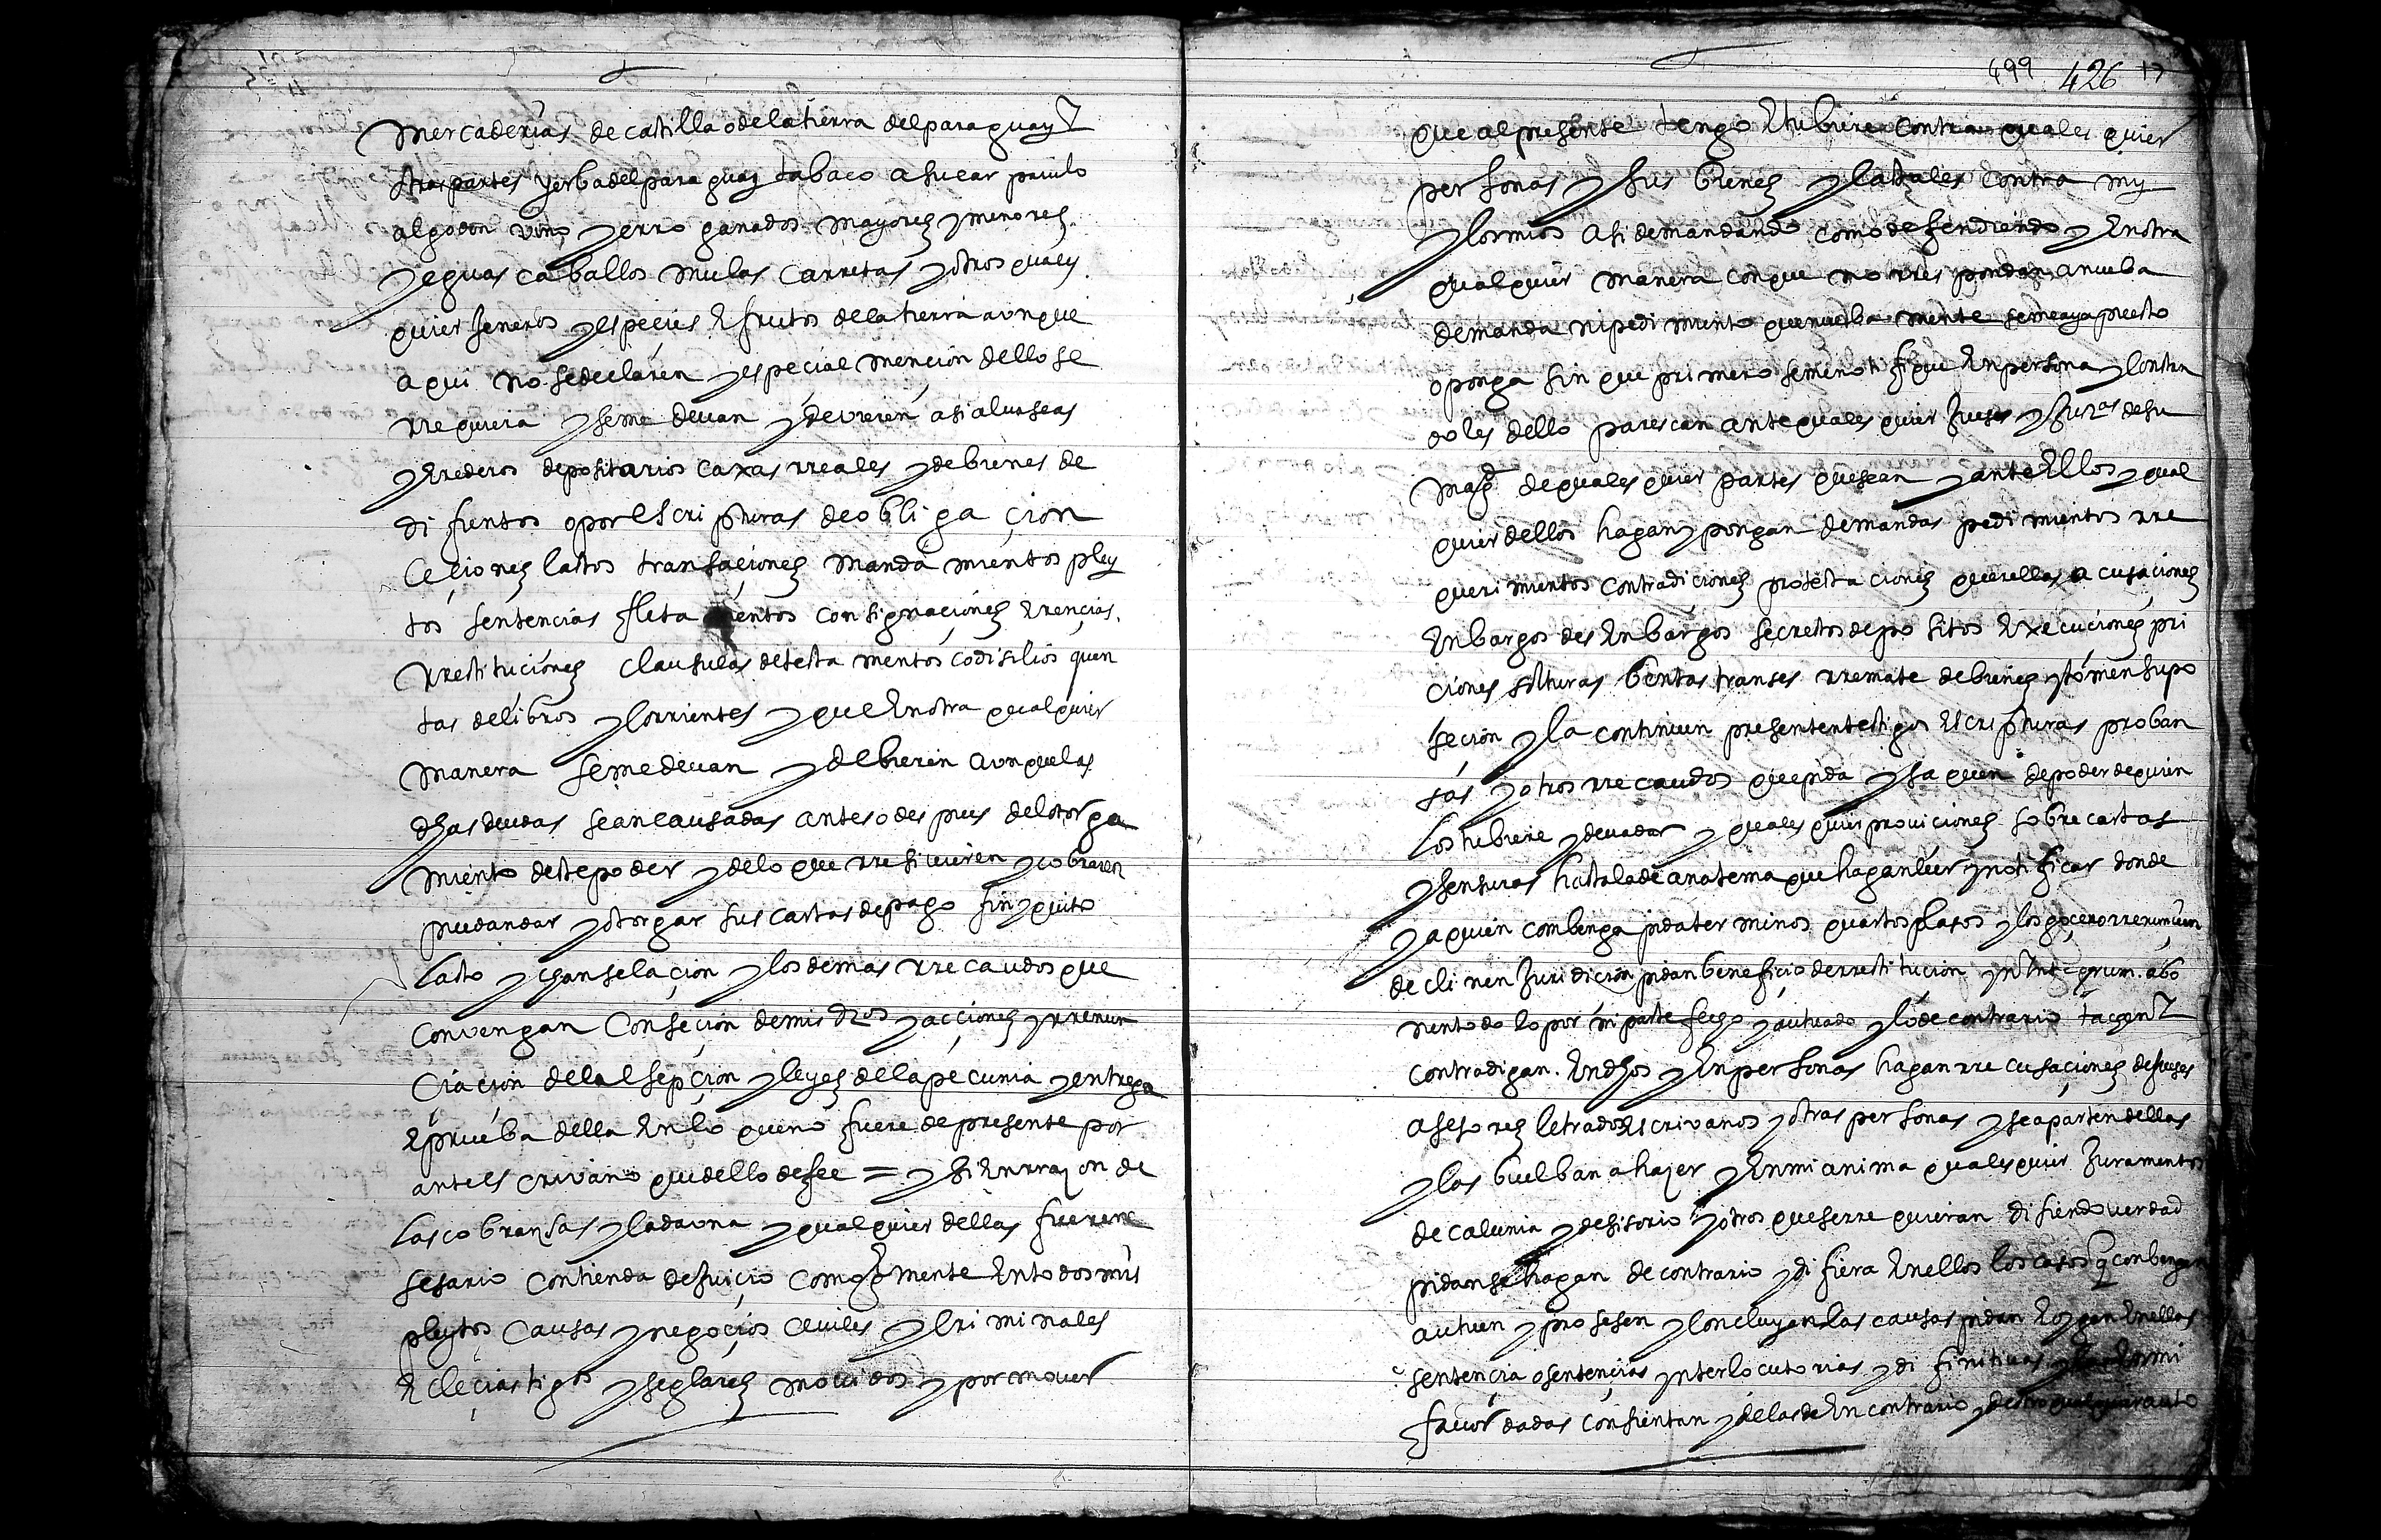 mercaderias de castilla o de la tierra del paraguay E
otras partes yerba del paraguay tabaco asucar pavilo
algodon vino yerro ganados mayores y menores
yeguas caballos mulas carretas y otros quales
quier jeneros y especies E frutos de la tierra aunque
aqui no se declaren y especial mencion dello se
rrequiera y se me devan y devieren asi albaseas
y Erederos depositarios caxas rreales y de bienes de
difuntos o por Escripturas de obligaçion
çeçiones lastos transaçiones mandamientos pley
tos sentencias fletamentos consignaçiones Erencias
rrestituciones clausulas de testamentos codisilios quen
tas de libros y corrientes y que En otra qualquier
manera se me devan y debieren aunque las
dhas deudas sean causadas antes o despues del otorga
miento deste poder y de lo que rresivieren y cobraren
puedan dar y otorgar sus cartas de pago finyquito
lasto y chanselaçion y los demas rrecaudos que
convengan con seçion de mis dros y acçiones y rrenun
ciaçion de la Esepçion y leyes de la pecunia y entrega
E prueba della En lo que no fuere de presente por
ante Escrivano que dello de fee = y si En rrazon de
las cobransas y cada una y qualquier dellas fuere ne
sesario contienda de juicio como generalmente En todos mis
pleytos causas y negoçios çeviles y criminales
Ecleçiastigos y seglares movidos y por mover
499 426 17
que al presente tengo E tubiere contra quales quier
personas y sus bienes y las tales contra my
y los mios asi demandando como defendiendo y En otra
qualquier manera con que no rrespondan a nueba
demanda ni pedimiento que nuebamente se me aya puesto
o ponga sin que primero se me notifique En persona y constan
doles dello parescan ante quales quier jueses y juzas de su
magd de quales quier partes que sean y ante Ellos y qual
quier dellos hagan y pongan demandas pedimientos rre
querimientos contradiciones protestaciones querellas acusaciones
Enbargos desEnbargos secrestos depositos Execuçiones pri
ciones solturas bentas transes rremate de bienes y tomen su po
seçion y la continuen presenten testigos Escripturas proban
sas y otros rrecaudos que pida y saquen de poder de quien
los tubiere y deva dar y quales quier proviciones sobrecartas
y sensuras hasta la de anatema que hagan leer y notificar donde
y a quien combenga pida terminos quartos plasos y los gocen o rrenuncien
declinen juridicion pidan beneficio de rrestitucion yn Integrum abo
nando lo por mi parte fecho y autuado y lo de contrario tachen E
contradigan En dhos y En personas hagan rrecusaçiones de jueses
asesores letrados Escrivanos y otras personas y se aparten dellas
y las buelban a hazer y En mi anima quales quier juramentos
de calunia y desisorio y otros que se rrequieran disiendo verdad
pidan se hagan de contrario y difiera En ellos los casos q conbengan
autuen y prosesen y concluyan las causas pidan E oygan En ellas
sentençia o sentençias ynterlocutorias y difinitivas y las En mi
favor dadas consientan y de las de En contrario y de otro qualquier auto